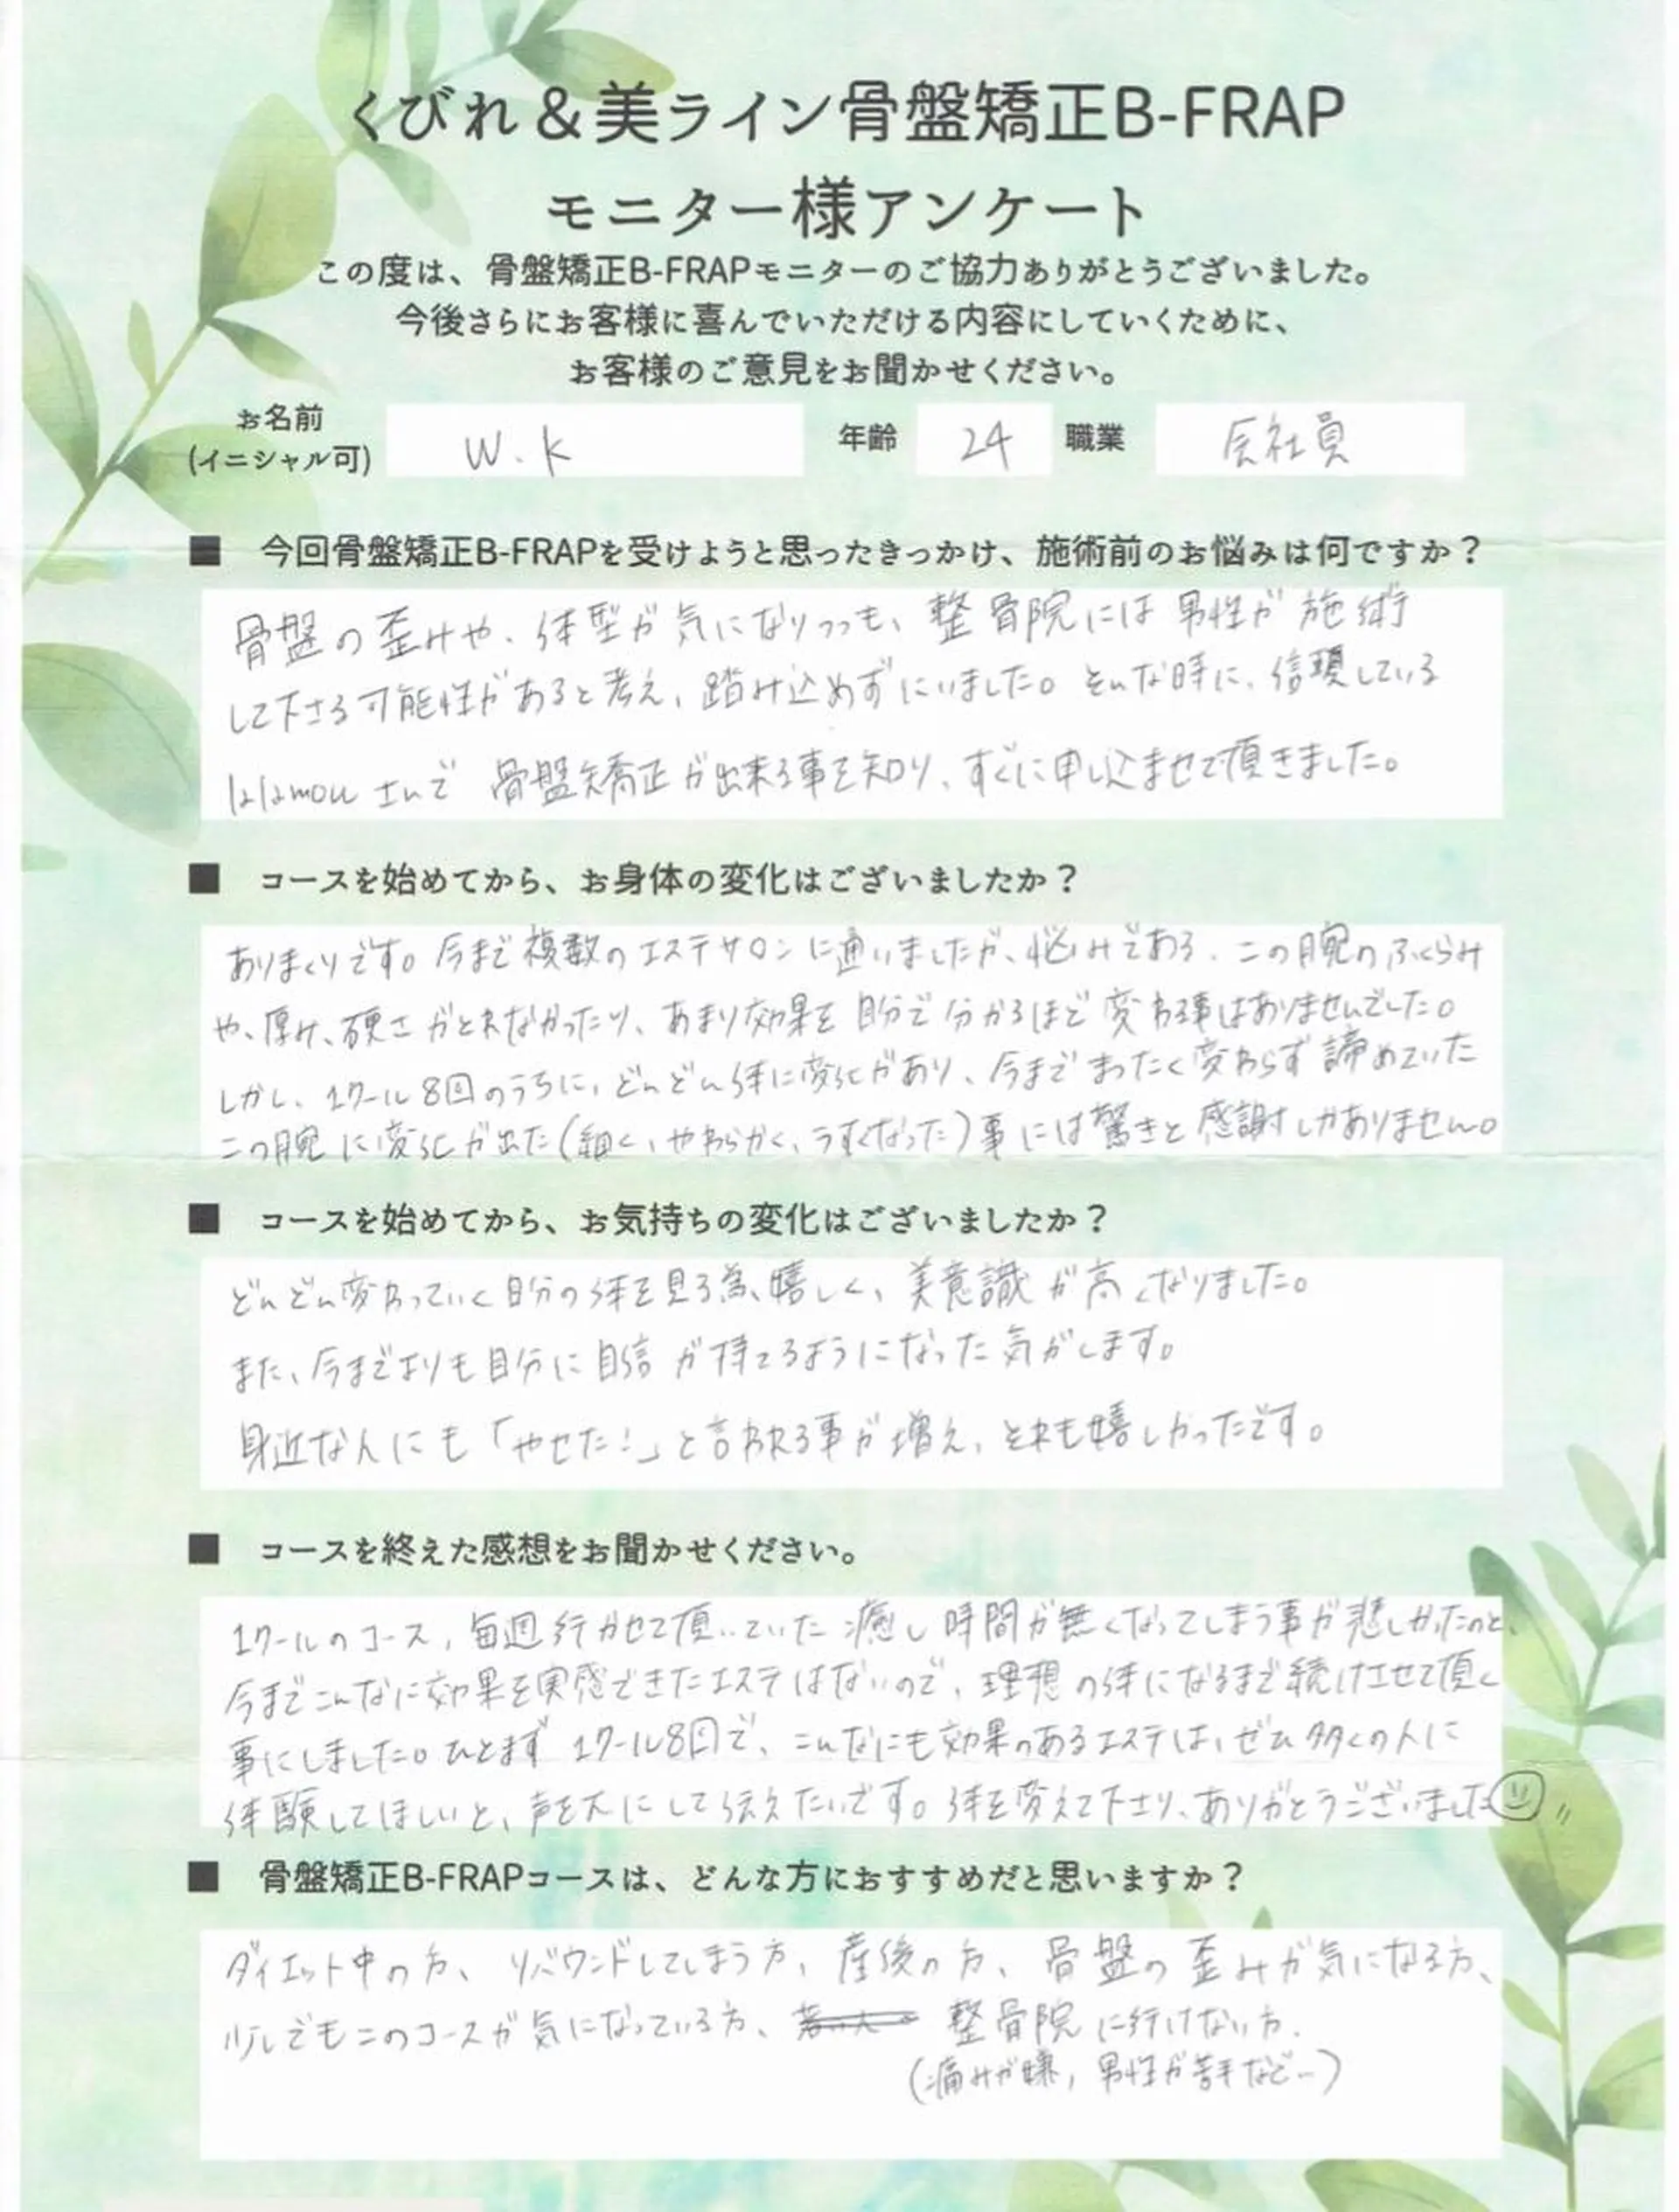 くびれ＆美ライン骨盤矯正B-FRAP
モニター様アンケート
この度は、骨盤矯正B-FRAPモニターのご協力ありがとうございました。
今後さらにお客様に喜んでいただける内容にしていくために、
お客様のご意見をお聞かせください。
お名前
(イニシャル可) W.K 年齢 24 職業 会社員
■ 今回骨盤矯正B-FRAPを受けようと思ったきっかけ、施術前のお悩みは何ですか？
骨盤の歪みや、体型が気になりつつも、整骨院には男性が施術
して下さる可能性があると考え、踏み込めずにいました。そんな時に、信頼している
lalamouさんで 骨盤矯正が出来る事を知り、すぐに申し込ませて頂きました。
■ コースを始めてから、お身体の変化はございましたか？
ありまくりです。今まで複数のエステサロンに通いましたが、悩みである、二の腕のふくらみ
や、厚み、硬さがとれなかったり、あまり効果を自分で分かるほど変わる事はありませんでした。
しかし、1クール8回のうちに、どんどん体に変化があり、今までまったく変わらず諦めていた
二の腕に変化が出た(細く、やわらかく、うすくなった)事には驚きと感謝しかありません。
■ コースを始めてから、お気持ちの変化はございましたか？
どんどん変わっていく自分の体を見る為、嬉しく、美意識が高くなりました。
また、今までよりも自分に自信が持てるようになった気がします。
身近な人にも「やせた!」と言われる事が増え、とれも嬉しかったです。
■ コースを終えた感想をお聞かせください。
1クールのコース、毎週行かせて頂いていた癒し時間が無くなってしまう事が悲しかったのと、
今までこんなに効果を実感できたエステはないので、理想の体になるまで続けさせて頂く
事にしました。ひとまず1クール8回で、こんなにも効果のあるエステは、ぜひ多くの人に
体験してほしいと、声を大にして伝えたいです。体を変えて下さり、ありがとうございました
■ 骨盤矯正B-FRAPコースは、どんな方におすすめだと思いますか？
ダイエット中の方、リバウンドしてしまう方、産後の方、骨盤の歪みが気になる方、
少しでもこのコースが気になっている方、整骨院に行けない方.
(痛みが嫌, 男性が苦手など…)